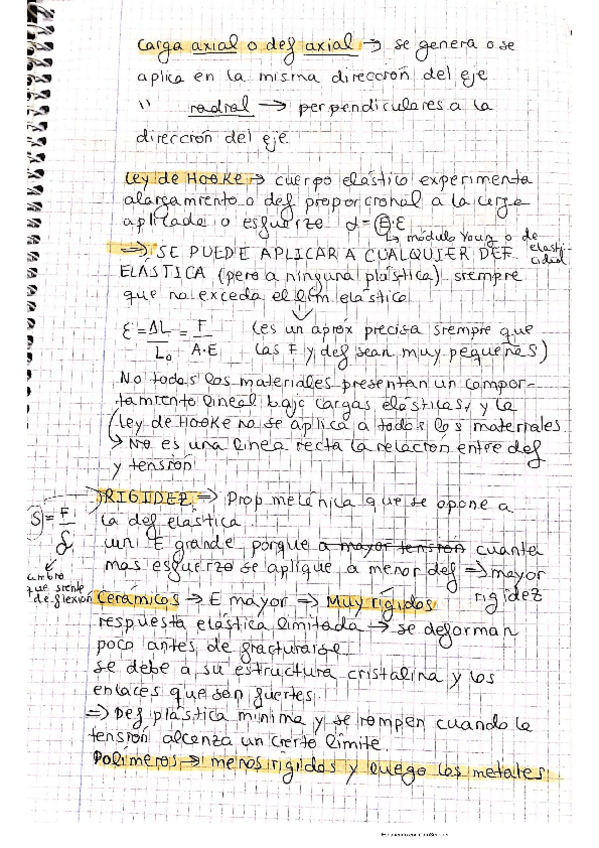 Carga axial o def axial → se genera o se
aplica en la misma dirección del eje
" radial → perpendiculares a la
dirección del eje.
Ley de Hooke → cuerpo elástico experimenta
alargamiento o def proporcional a la carga
aplicada o esfuerzo σ = E·ε
↳ módulo Young o de elasticidad
⇒ SE PUEDE APLICAR A CUALQUIER DEF
ELASTICA (pero a ninguna plástica) siempre
que no exceda el lím elástico
ε = ΔL/L₀ = F/A·E (es un aprox precisa siempre que
las F y def sean muy pequeñas)
No todos los materiales presentan un compor-
tamiento lineal bajo cargas elásticas, y la
ley de Hooke no se aplica a todos los materiales.
↳ No es una linea recta la relación entre def
y tensión
RIGIDEZ → Prop mecánica que se opone a
la def elastica.
S = F/δ
un E grande porque a mayor tensión cuanto
mas esfuerzo se aplique a menor def ⇒ mayor
rigidez
que siente
deflexión
Cerámicos → E mayor ⇒ Muy rígidos
respuesta elástica limitada → se deforman
poco antes de fracturarse
se debe a su estructura cristalina y los
enlaces que son fuertes.
⇒ Def plástica minima y se rompen cuando la
tensión alcanza un cierto límite.
Polímeros → menos rígidos y luego los metales